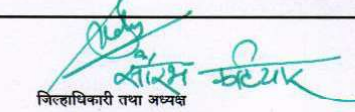 सौरभ कटियार
जिल्हाधिकारी तथा अध्यक्ष